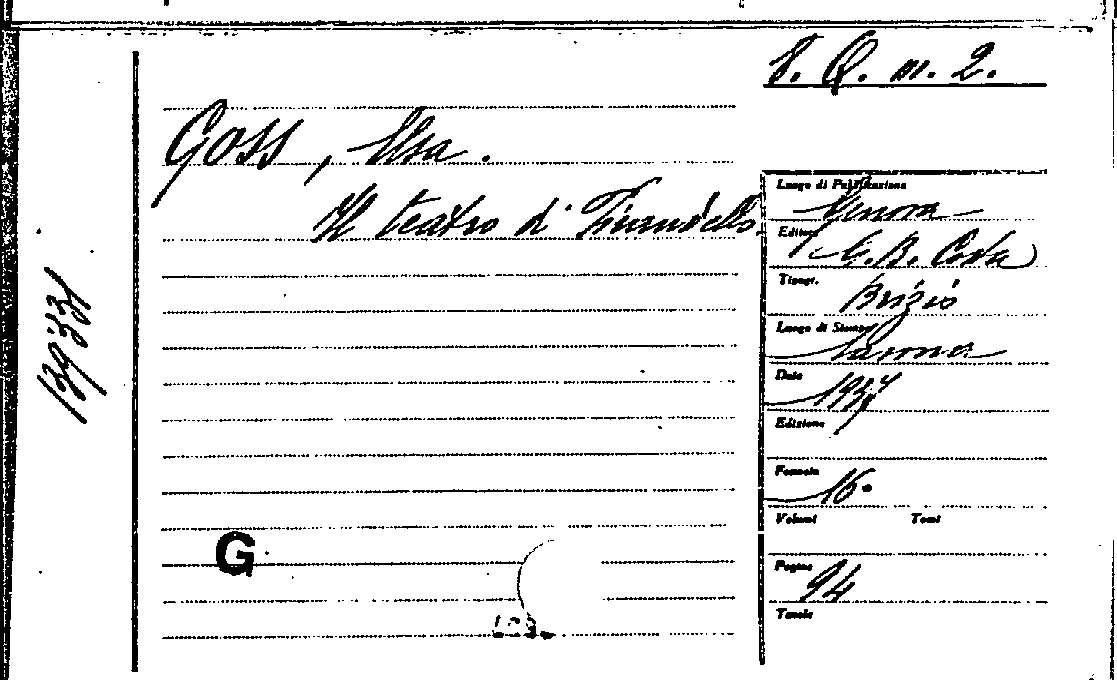 8. Q. m. 2.
Goss, Elsa.
Il teatro di Pirandello.
13933
Luogo di Pubblicazione
Genova
Editore
G. B. Costa
Tipogr.
Brizio
Luogo di Stampa
Savona
Data
1937
Edizione
Formato
16.
Volumi Tomi
Pagine
94
Tavole
G